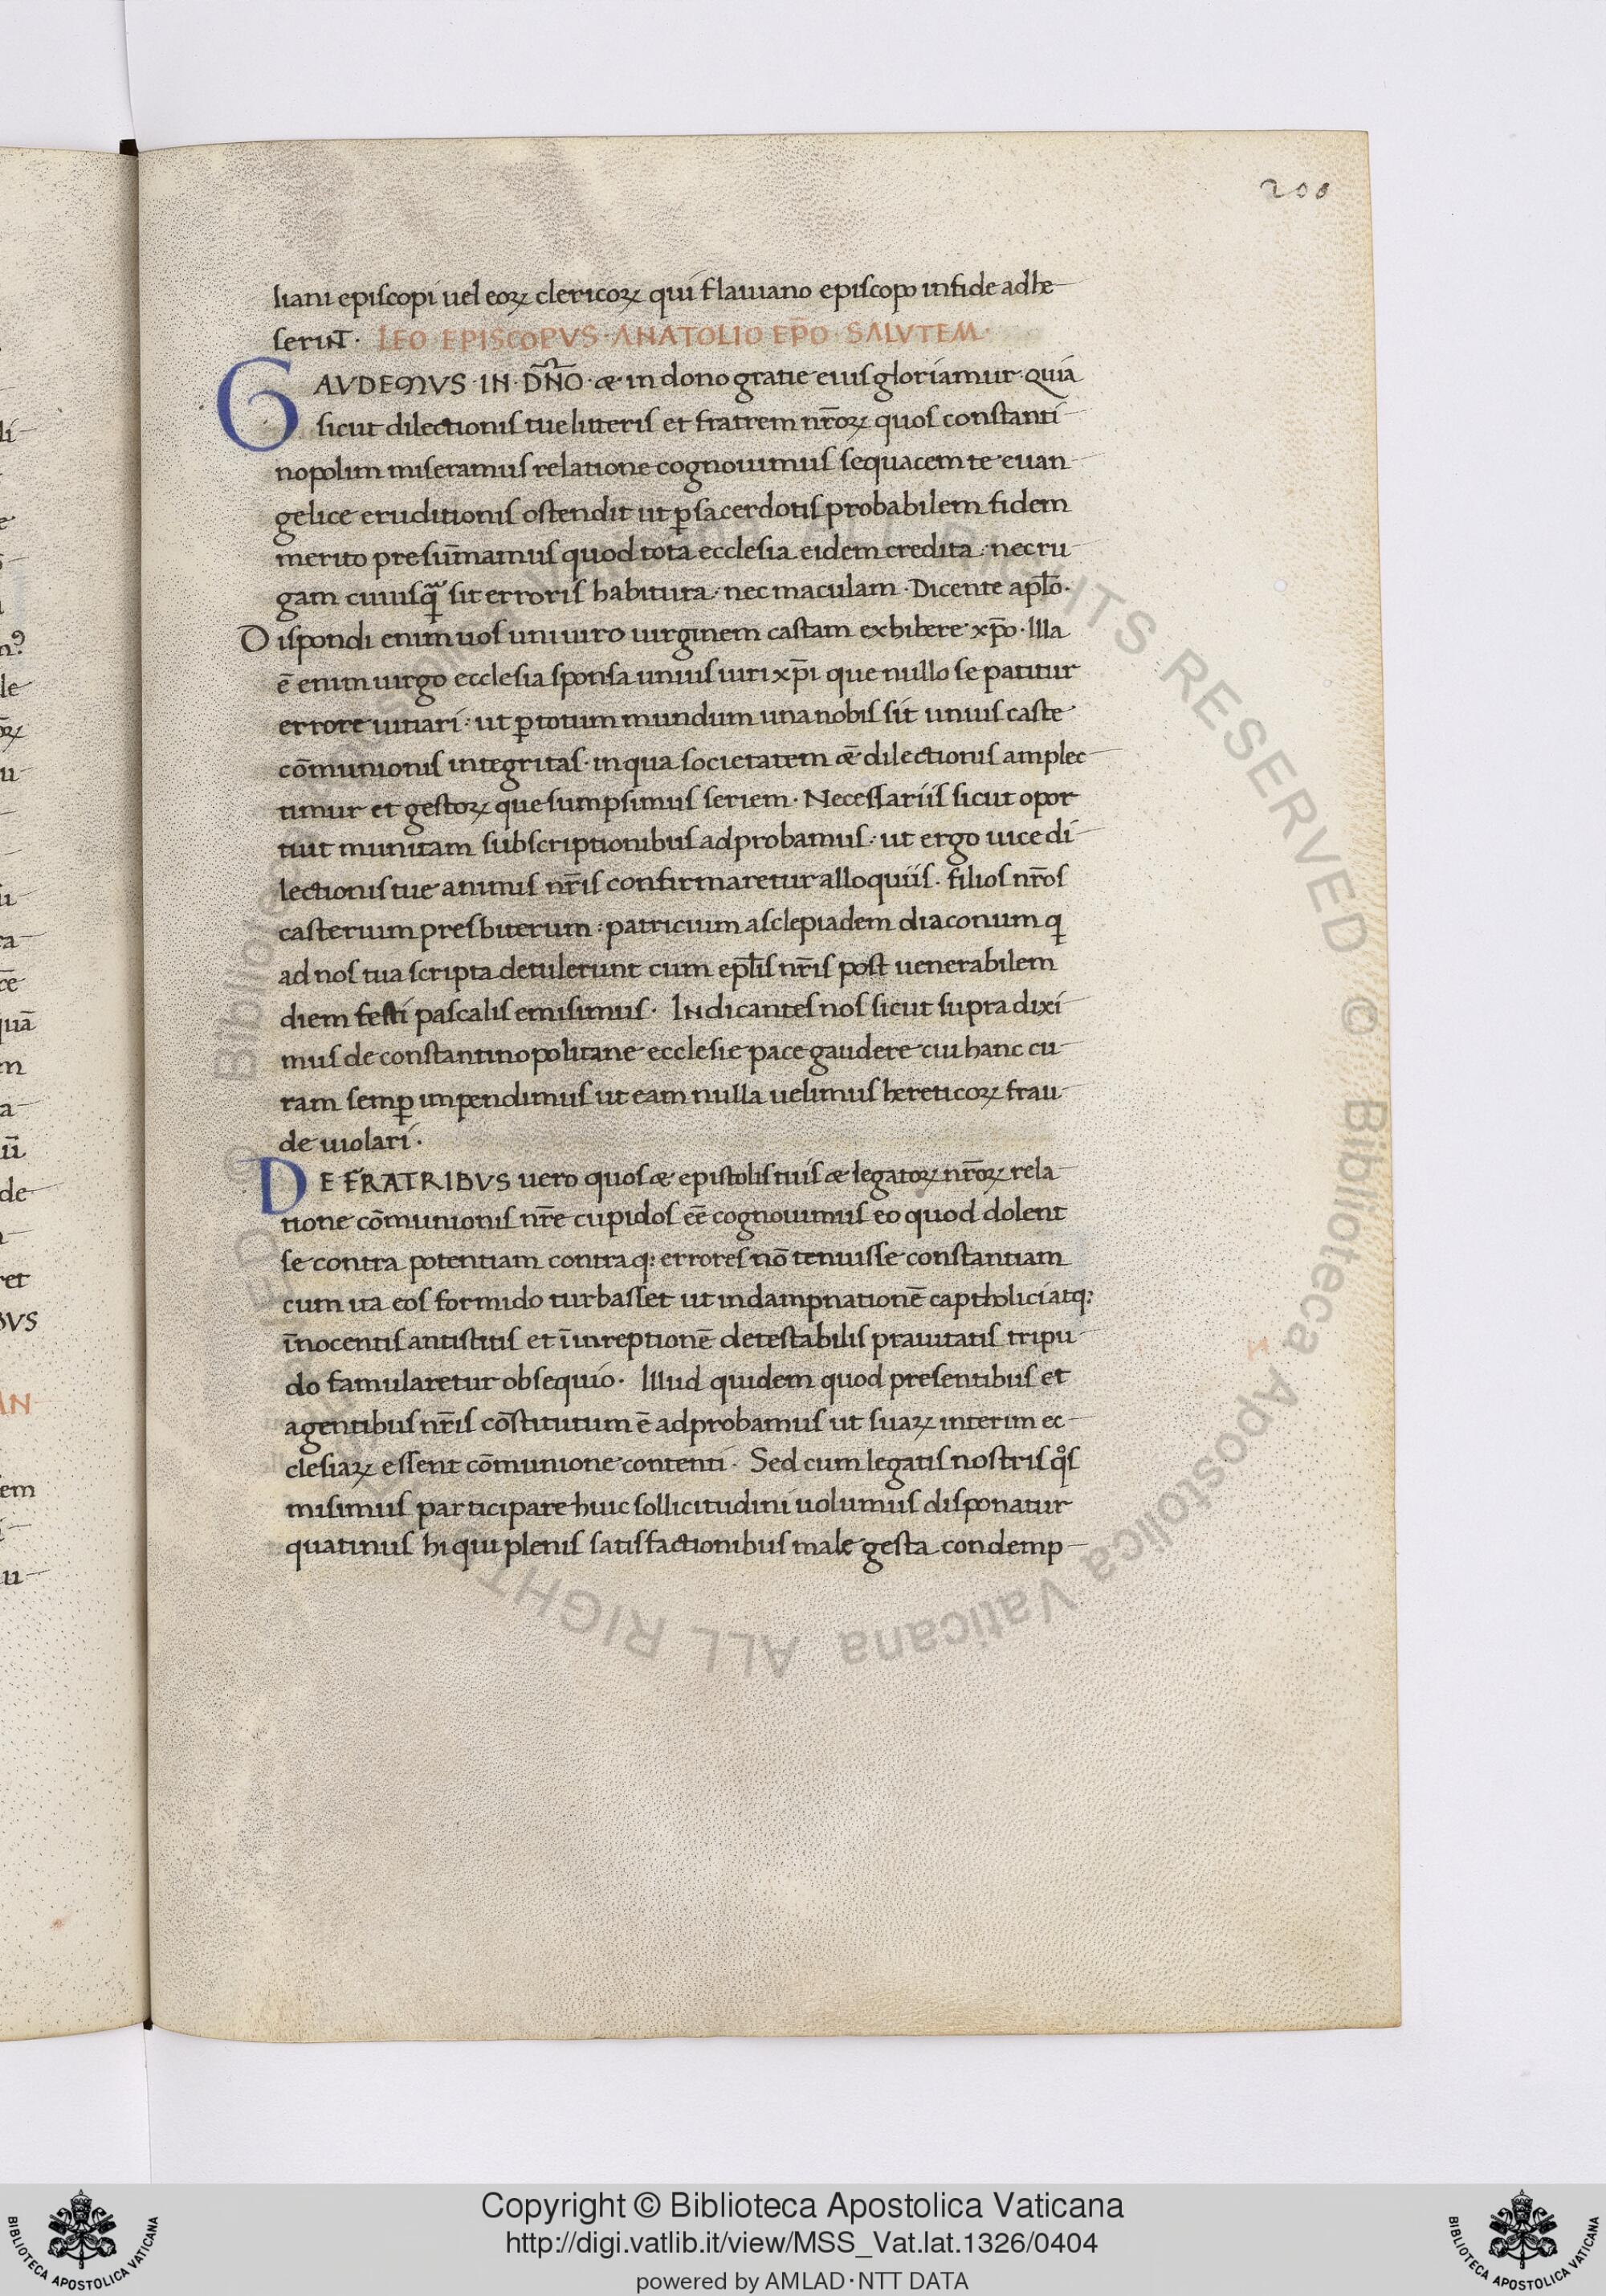 200
liani episcopi uel eoꝝ clericoꝝ qui flauiano episcopo in fide adhe-
serint. LEO EPISCOPVS·ANATOLIO EP̄O·SALVTEM·
GAVDEMVS·IN·DN̄O·æ in dono gratie eius gloriamur·quia
sicut dilectionis tue litteris et fratrem nr̄oꝝ quos constanti-
nopolim miseramus relatione cognouimus sequacem te euan-
gelice eruditionis ostendit ut ꝑ sacerdotis probabilem fidem
merito presum̄amus quod tota ecclesia eidem credita·nec ru-
gam cuiusqᷓ sit erroris habitura·nec maculam·Dicente apl̄o·
Dispondi enim uos uni uiro uirginem castam exhibere xp̄o·Illa
ē enim uirgo ecclesia sponsa unius uiri xp̄i que nullo se patitur
errore uitiari·ut ꝑ totum mundum una nobis sit unius caste
cōmunionis integritas·in qua societatem ǣ dilectionis amplec-
timur et gestoꝝ que sumpsimus seriem·Necessariis sicut opor
tuit munitam subscriptionibus adprobamus·ut ergo uice di-
lectionis tue animis nr̄is confirmaretur alloquiis·filios nr̄os
casterium presbiterum·patricium asclepiadem diaconum q
ad nos tua scripta detulerunt cum epl̄is nr̄is post uenerabilem
diem festi pascalis emisimus· Indicantes nos sicut supra dixi-
mus de constantinopolitane ecclesie pace gaudere cui hanc cu-
ram semꝑ impendimus ut eam nulla uelimus hereticoꝝ frau-
de uiolari·
DE FRATRIBVS uero quos æ epistolis tuis æ legatoꝝ nr̄oꝝ rela-
tione cōmunionis nr̄e cupidos eē cognouimus eo quod dolent
se contra potentiam contraq: errores nō tenuisse constantiam
cum ita eos formido turbasset ut in dampnationē captholici atq:
īnocentis antistitis et ī inreptionē detestabilis prauitatis tripu-
do famularetur obsequio· Illud quidem quod presentibus et
agentibus nr̄is cōstitutum ē adprobamus ut suaꝝ interim ec-
clesiaꝝ essent cōmunione contenti· Sed cum legatis nostris qͦs
misimus participare huic sollicitudini uolumus disponatur
quatinus hi qui plenis satisfactionibus male gesta condemp-
Copyright © Biblioteca Apostolica Vaticana
http://digi.vatlib.it/view/MSS_Vat.lat.1326/0404
powered by AMLAD·NTT DATA